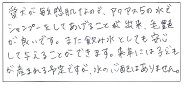 愛犬が敏感肌なので、アクアス5の水で
シャンプーとしてあげることが出来、毛艶
が良いです。また飲み水としても安心
して与えることができます。来年には子ども
が産まれる予定ですが、水の心配はありません。